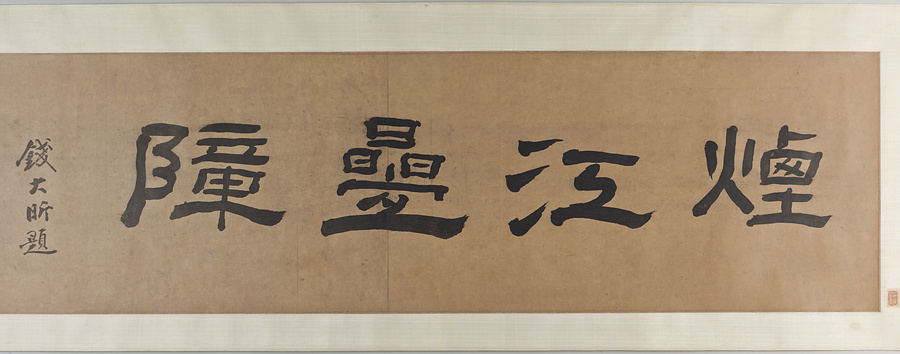 煙江曡障
錢大昕題